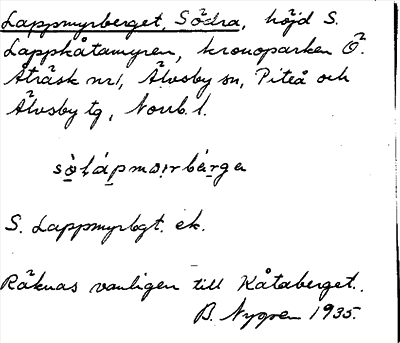 Lappmyrberget, Södra, höjd S.
Lappkåtamyren, kronoparken Ö.
Åträsk nr 1, Älvsby sn, Piteå och
Älvsby tg, Norrb. l.
sò̤ļáp̱mo̤ı̣rbár̤ga
S. Lappmyrbgt. ek.
Räknas vanligen till Kåtaberget.
B. Nygren 1935.